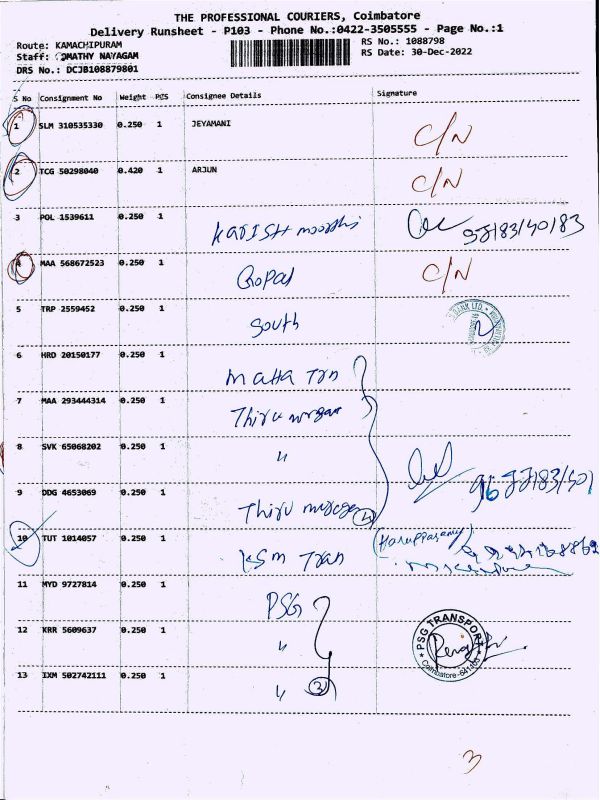 THE PROFESSIONAL COURIERS, Coimbatore
Delivery Runsheet - P103 - Phone No.:0422-3505555 - Page No.:1
Route: KAMACHIPURAM
RS No.: 1088798
Staff: GOMATHY NAYAGAM
RS Date: 30-Dec-2022
DRS No.: DCJB108879801
S No Consignment No Weight PCS Consignee Details Signature
1 SLM 310535330 0.250 1 JEYAMANI C/N
2 TCG 50298040 0.420 1 ARJUN C/N
3 POL 1539611 0.250 1
4 MAA 568672523 0.250 1 Gopal C/N
5 TRP 2559452 0.250 1 South
6 HRD 20150177 0.250 1
7 MAA 293444314 0.250 1 Thiru
8 SVK 65068202 0.250 1 "
9 DDG 4653069 0.250 1 Thiru
10 TUT 1014057 0.250 1 KSM Tran (Karuppasamy)
11 MYD 9727814 0.250 1 PSG
12 KRR 5609637 0.250 1 " PSG TRANSPORT
13 IXM 502742111 0.250 1 " 3 Coimbatore
3